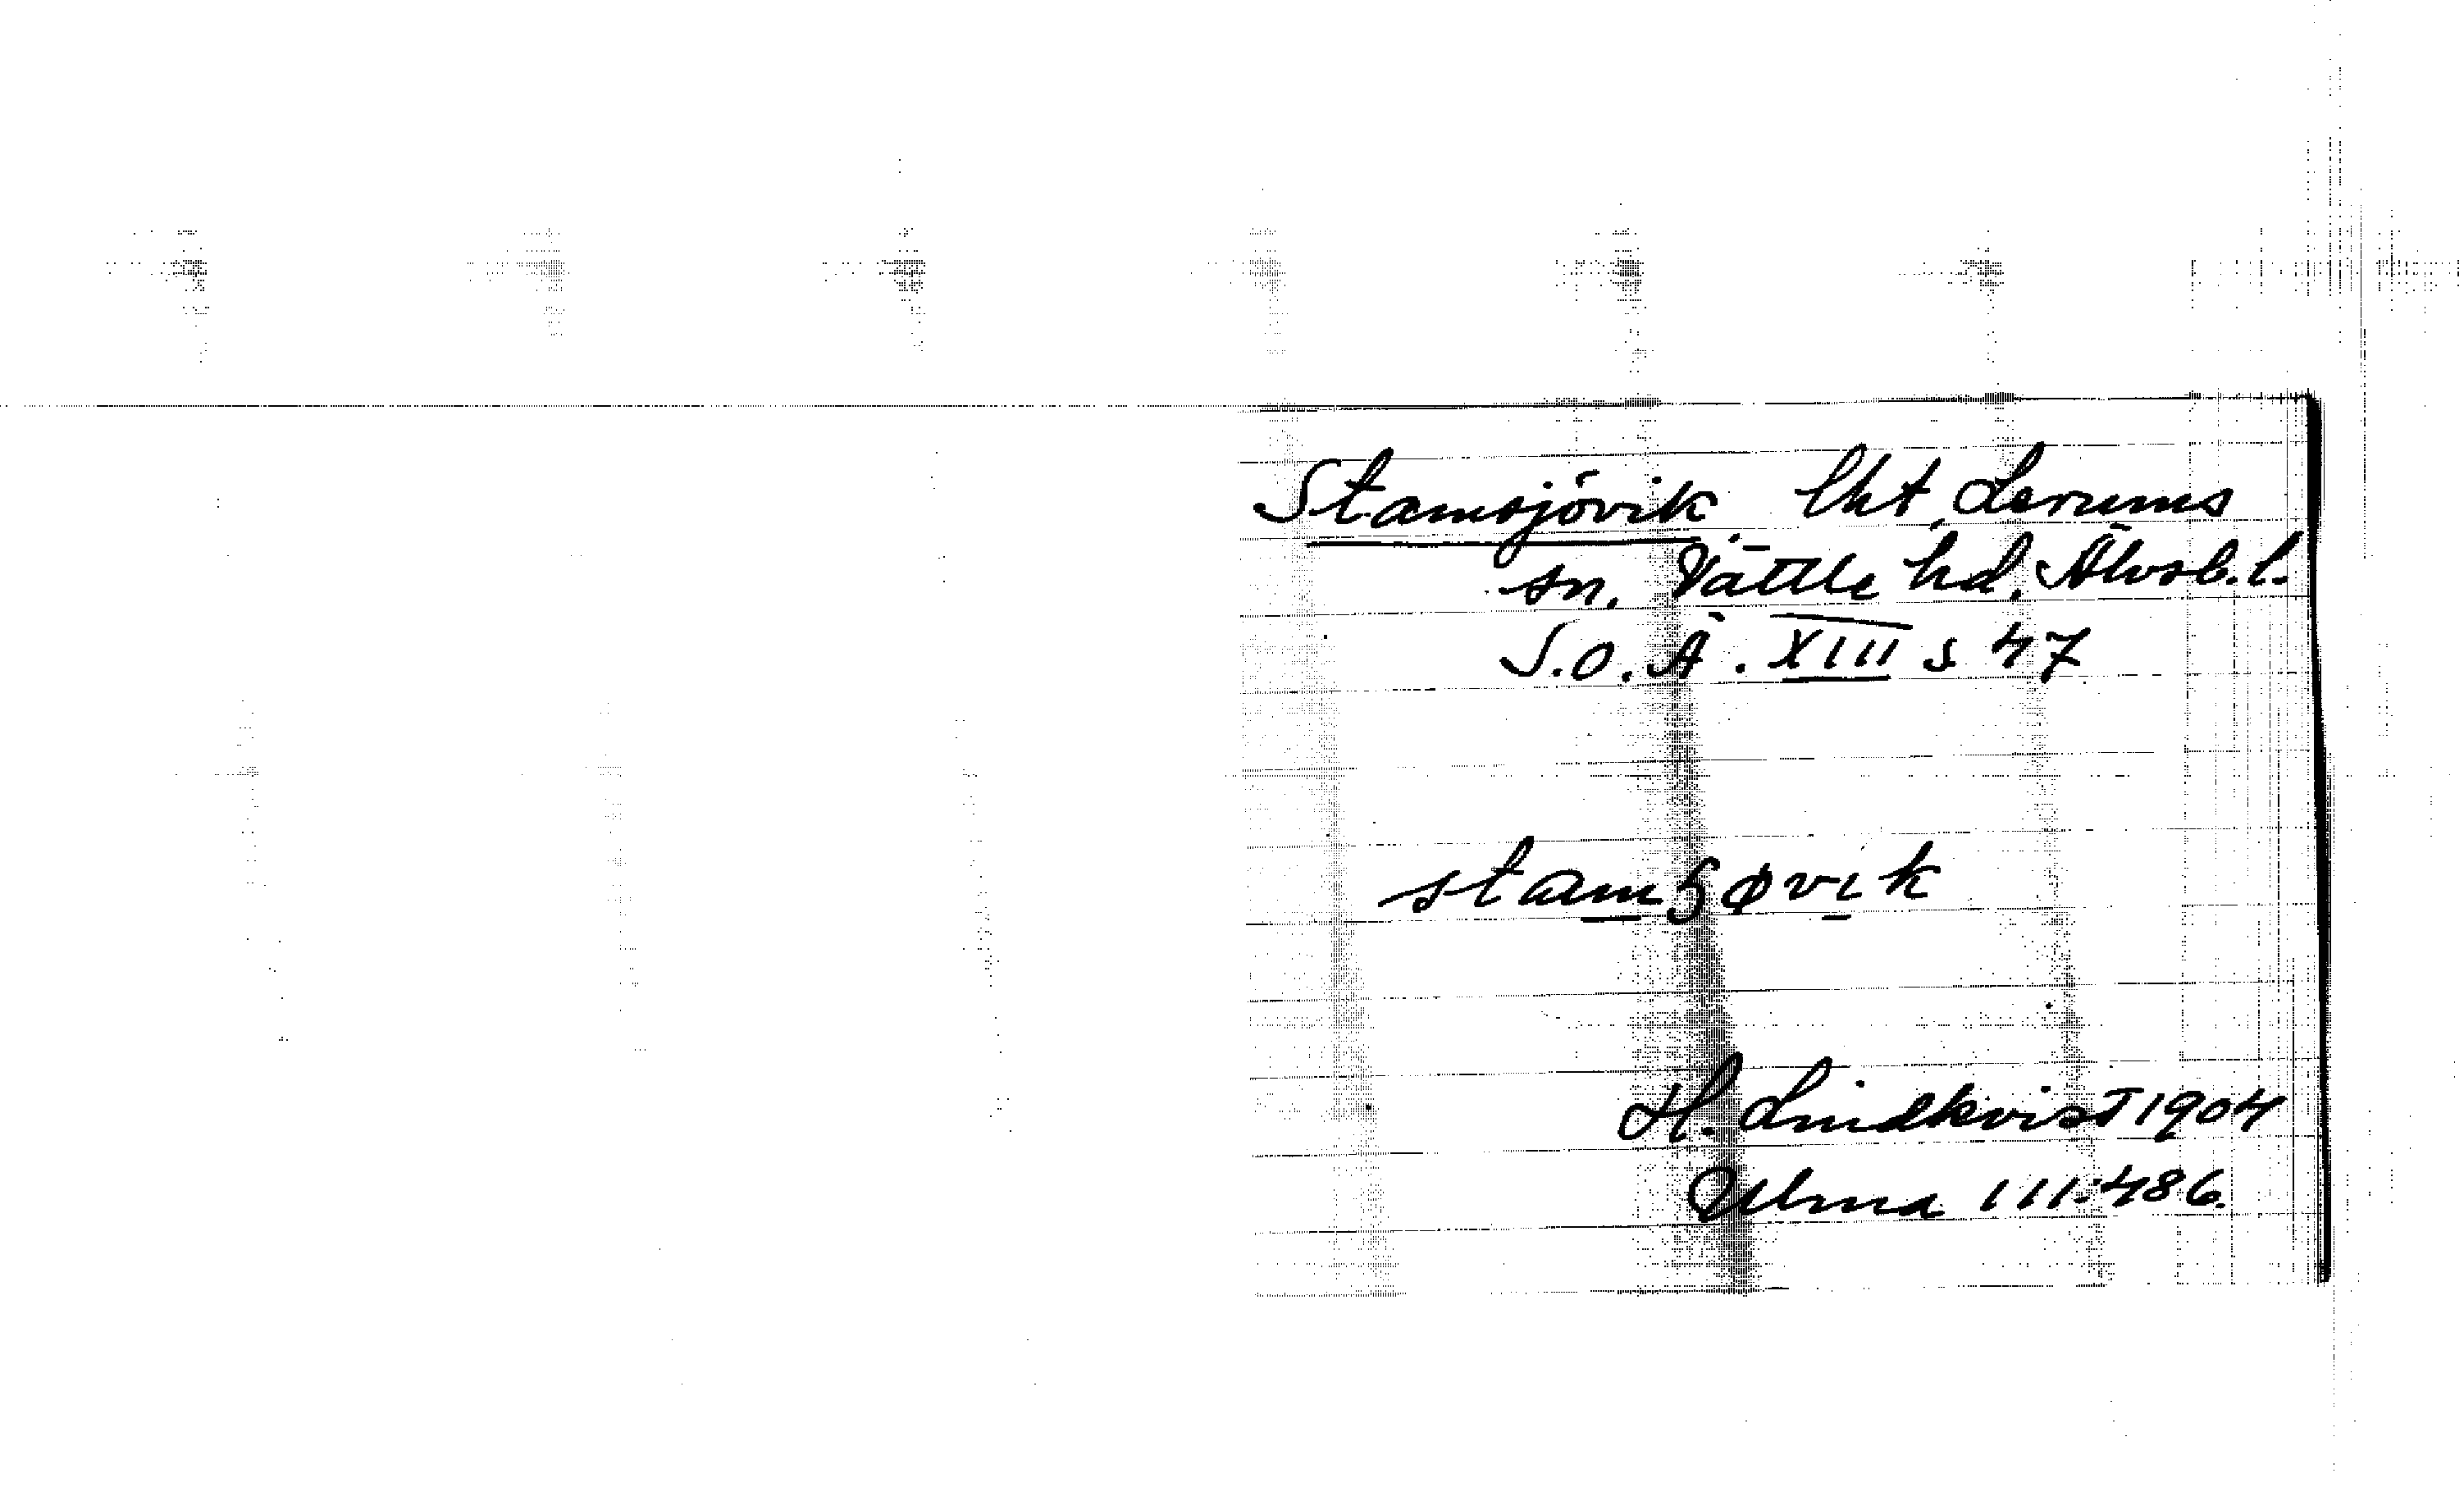 Stamsjövik lht, Lerums
sn. Vättle hd. Älvsb. l.
S.O.Ä. XIII s 47
stamʂøvik
H. Lindkvist 1904
Ulma 111:486.